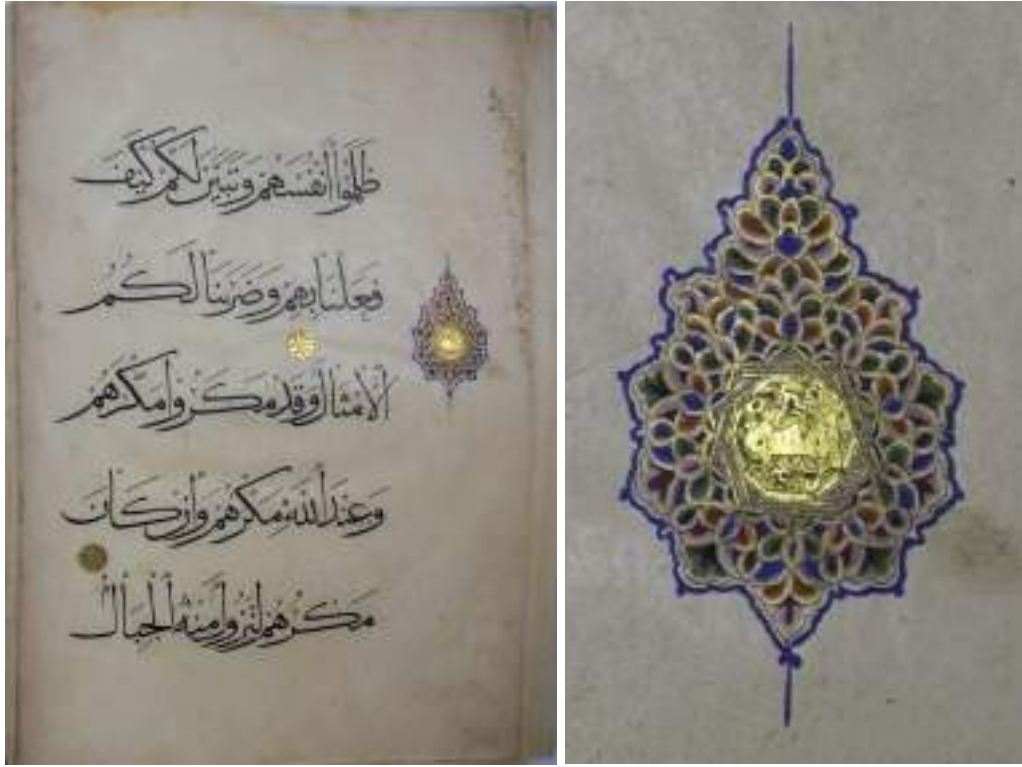 ظَلَمُوا أَنْفُسَهُمْ وَتَبَيَّنَ لَكُمْ كَيْفَ
فَعَلْنَا بِهِمْ وَضَرَبْنَا لَكُمُ
الْأَمْثَالَ وَقَدْ مَكَرُوا مَكْرَهُمْ
وَعِنْدَ اللَّهِ مَكْرُهُمْ وَإِنْ كَانَ
مَكْرُهُمْ لِتَزُولَ مِنْهُ الْجِبَالُ